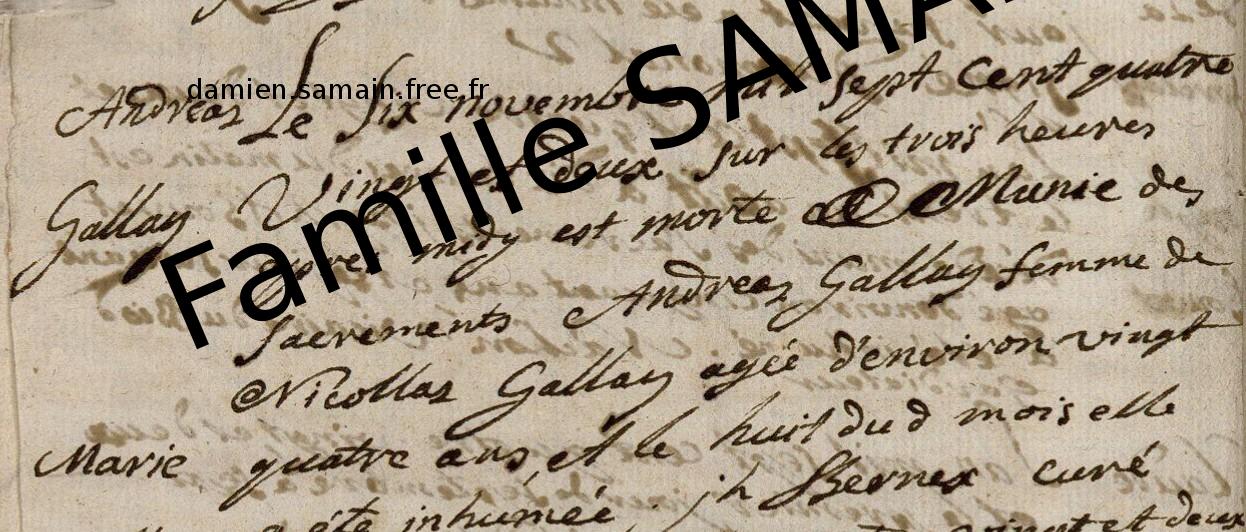 damien.samain.free.fr
Famille SAMAI
Andréaz Le Six novembre mil sept Cent quatre
Gallay Vingt et deux sur les trois heures
apres midy est morte Munie des
Sacrements Andreaz Gallay femme de
Nicollaz Gallay agéé d'environ vingt
Marie quatre ans, et le huit du d mois elle
a éte inhuméé. jh Bernex curé
vingt et deux